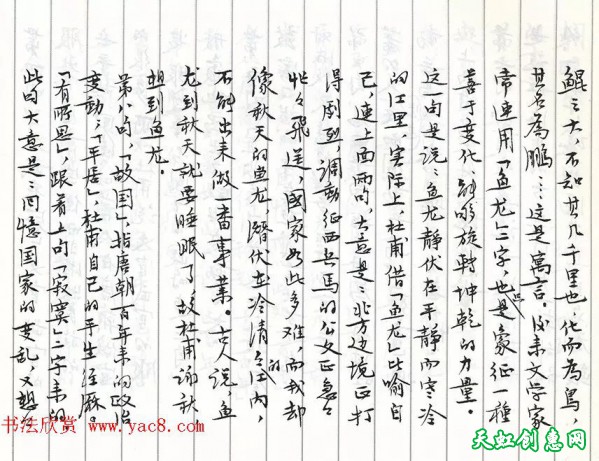 鯤之大不知其几千里也，化而為鳥，
其名為鵬…這是寓言。後来文学家
常連用「鱼龙」二字，也是象征一種
善于变化、能够旋轉坤乾的力量。
這一句是説：鱼龙静伏在平静而寒冷
的江里，实际上，杜甫借「鱼龙」比喻自
己，連上面两句，大意是：北方边境正打
得劇烈，調動征西兵馬的公文正急々
忙々飛送，國家如此多难，而我却
像秋天的鱼龙，潛伏在冷清的江内，
不能出来做一番事業。古人说，鱼
龙到秋天就要睡眠了，故杜甫詠秋
想到鱼龙。
第八句，「故国」，指唐朝百年来的政治
变動，「平居」，杜甫自己的平生经麻。
「有所思」，跟着上句「寂寞」字来的
此句大意是：回憶国家的变乱，又想
书法欣赏 www.yac8.com
天虹创意网